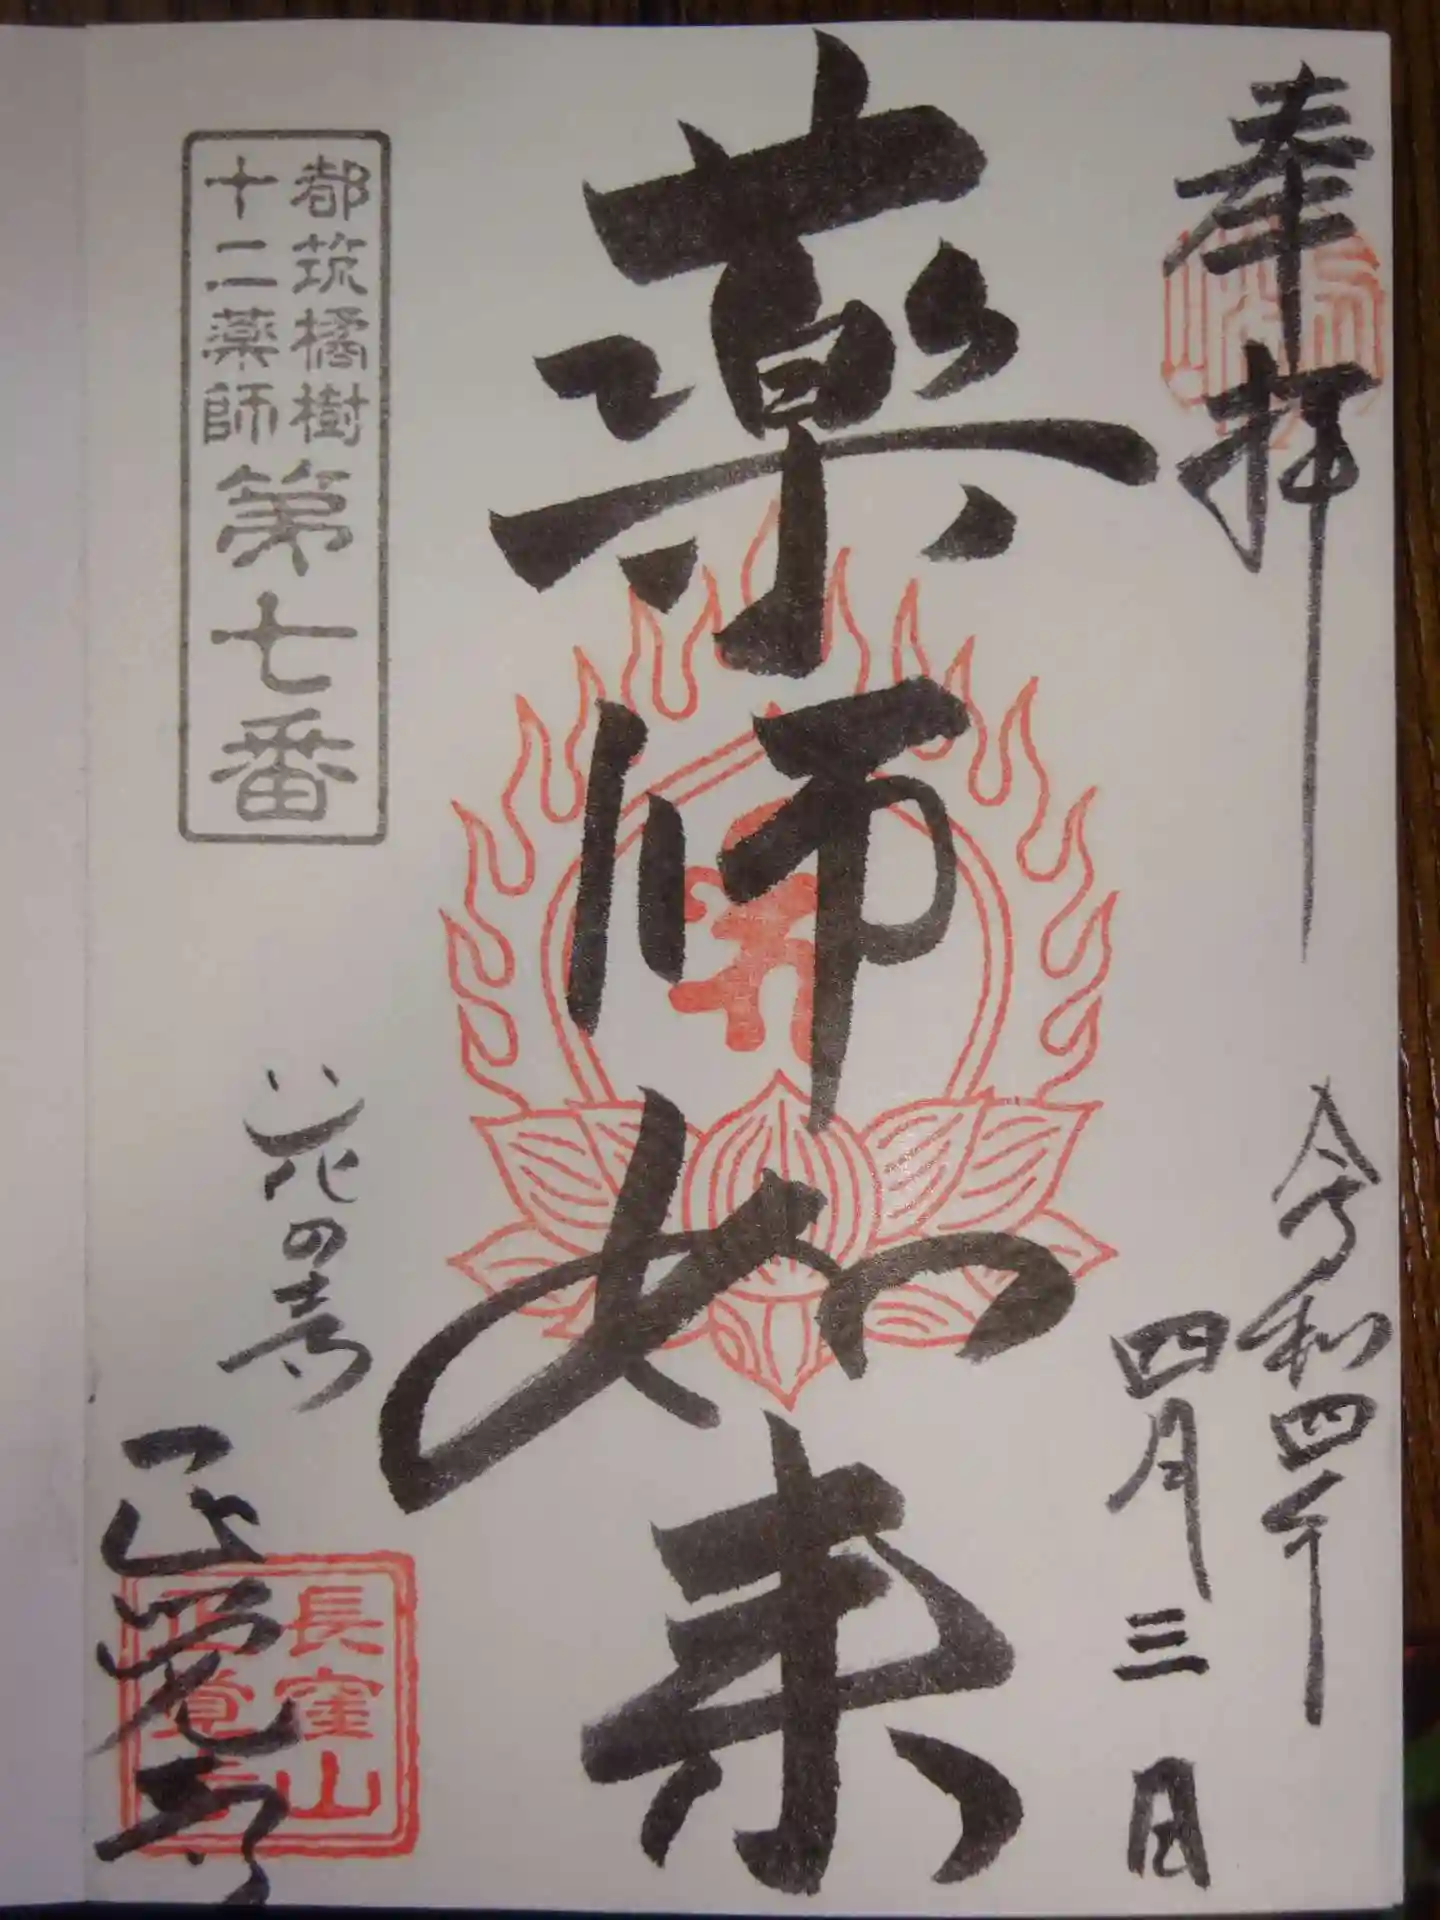 奉拝
令和四年
四月三日
薬師如来
都筑橘樹
十二薬師
第七番
花の寺
正覚寺
長窪山
正覚寺